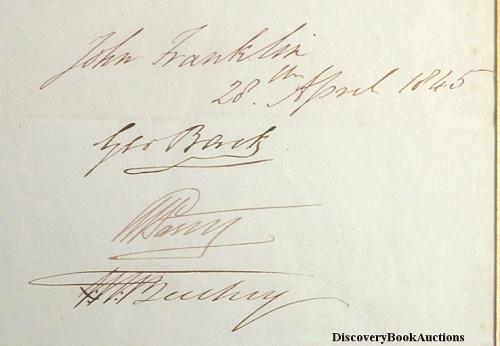 John Franklin
28.th April 1845
Geo Back.
WEParry
F.W.Beechey
DiscoveryBookAuctions